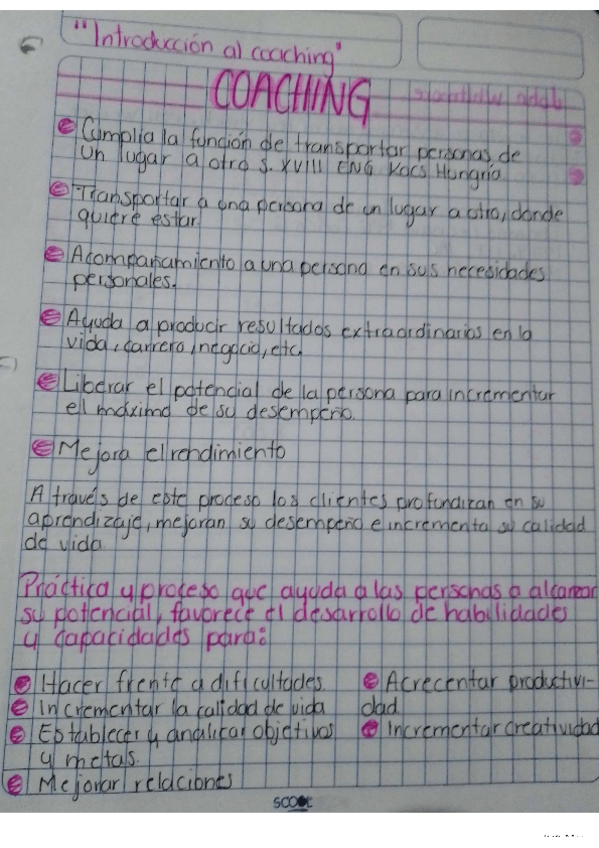 "Introducción al coaching"
COACHING
Cumplia la función de transportar personas, de
un lugar a otro s. XVIII ENG Kocs Hungria
Transportar a una persona de un lugar a otro, donde
quiere estar.
Acompañamiento a una persona en sus necesidades
personales.
Ayuda a producir resultados extraordinarios en la
vida, carrera, negocio, etc.
Liberar el potencial de la persona para incrementar
el máximo de su desempeño.
Mejora el rendimiento
A través de este proceso los clientes profundizan en su
aprendizaje, mejoran su desempeño e incrementa su calidad
de vida.
Práctica y proceso que ayuda a las personas a alcanzar
su potencial, favorece el desarrollo de habilidades
y capacidades para:
Hacer frente a dificultades.
Incrementar la calidad de vida
Establecer y analizar objetivos
y metas.
Mejorar relaciones
Acrecentar productivi-
dad
Incrementar creatividad
SCOOL